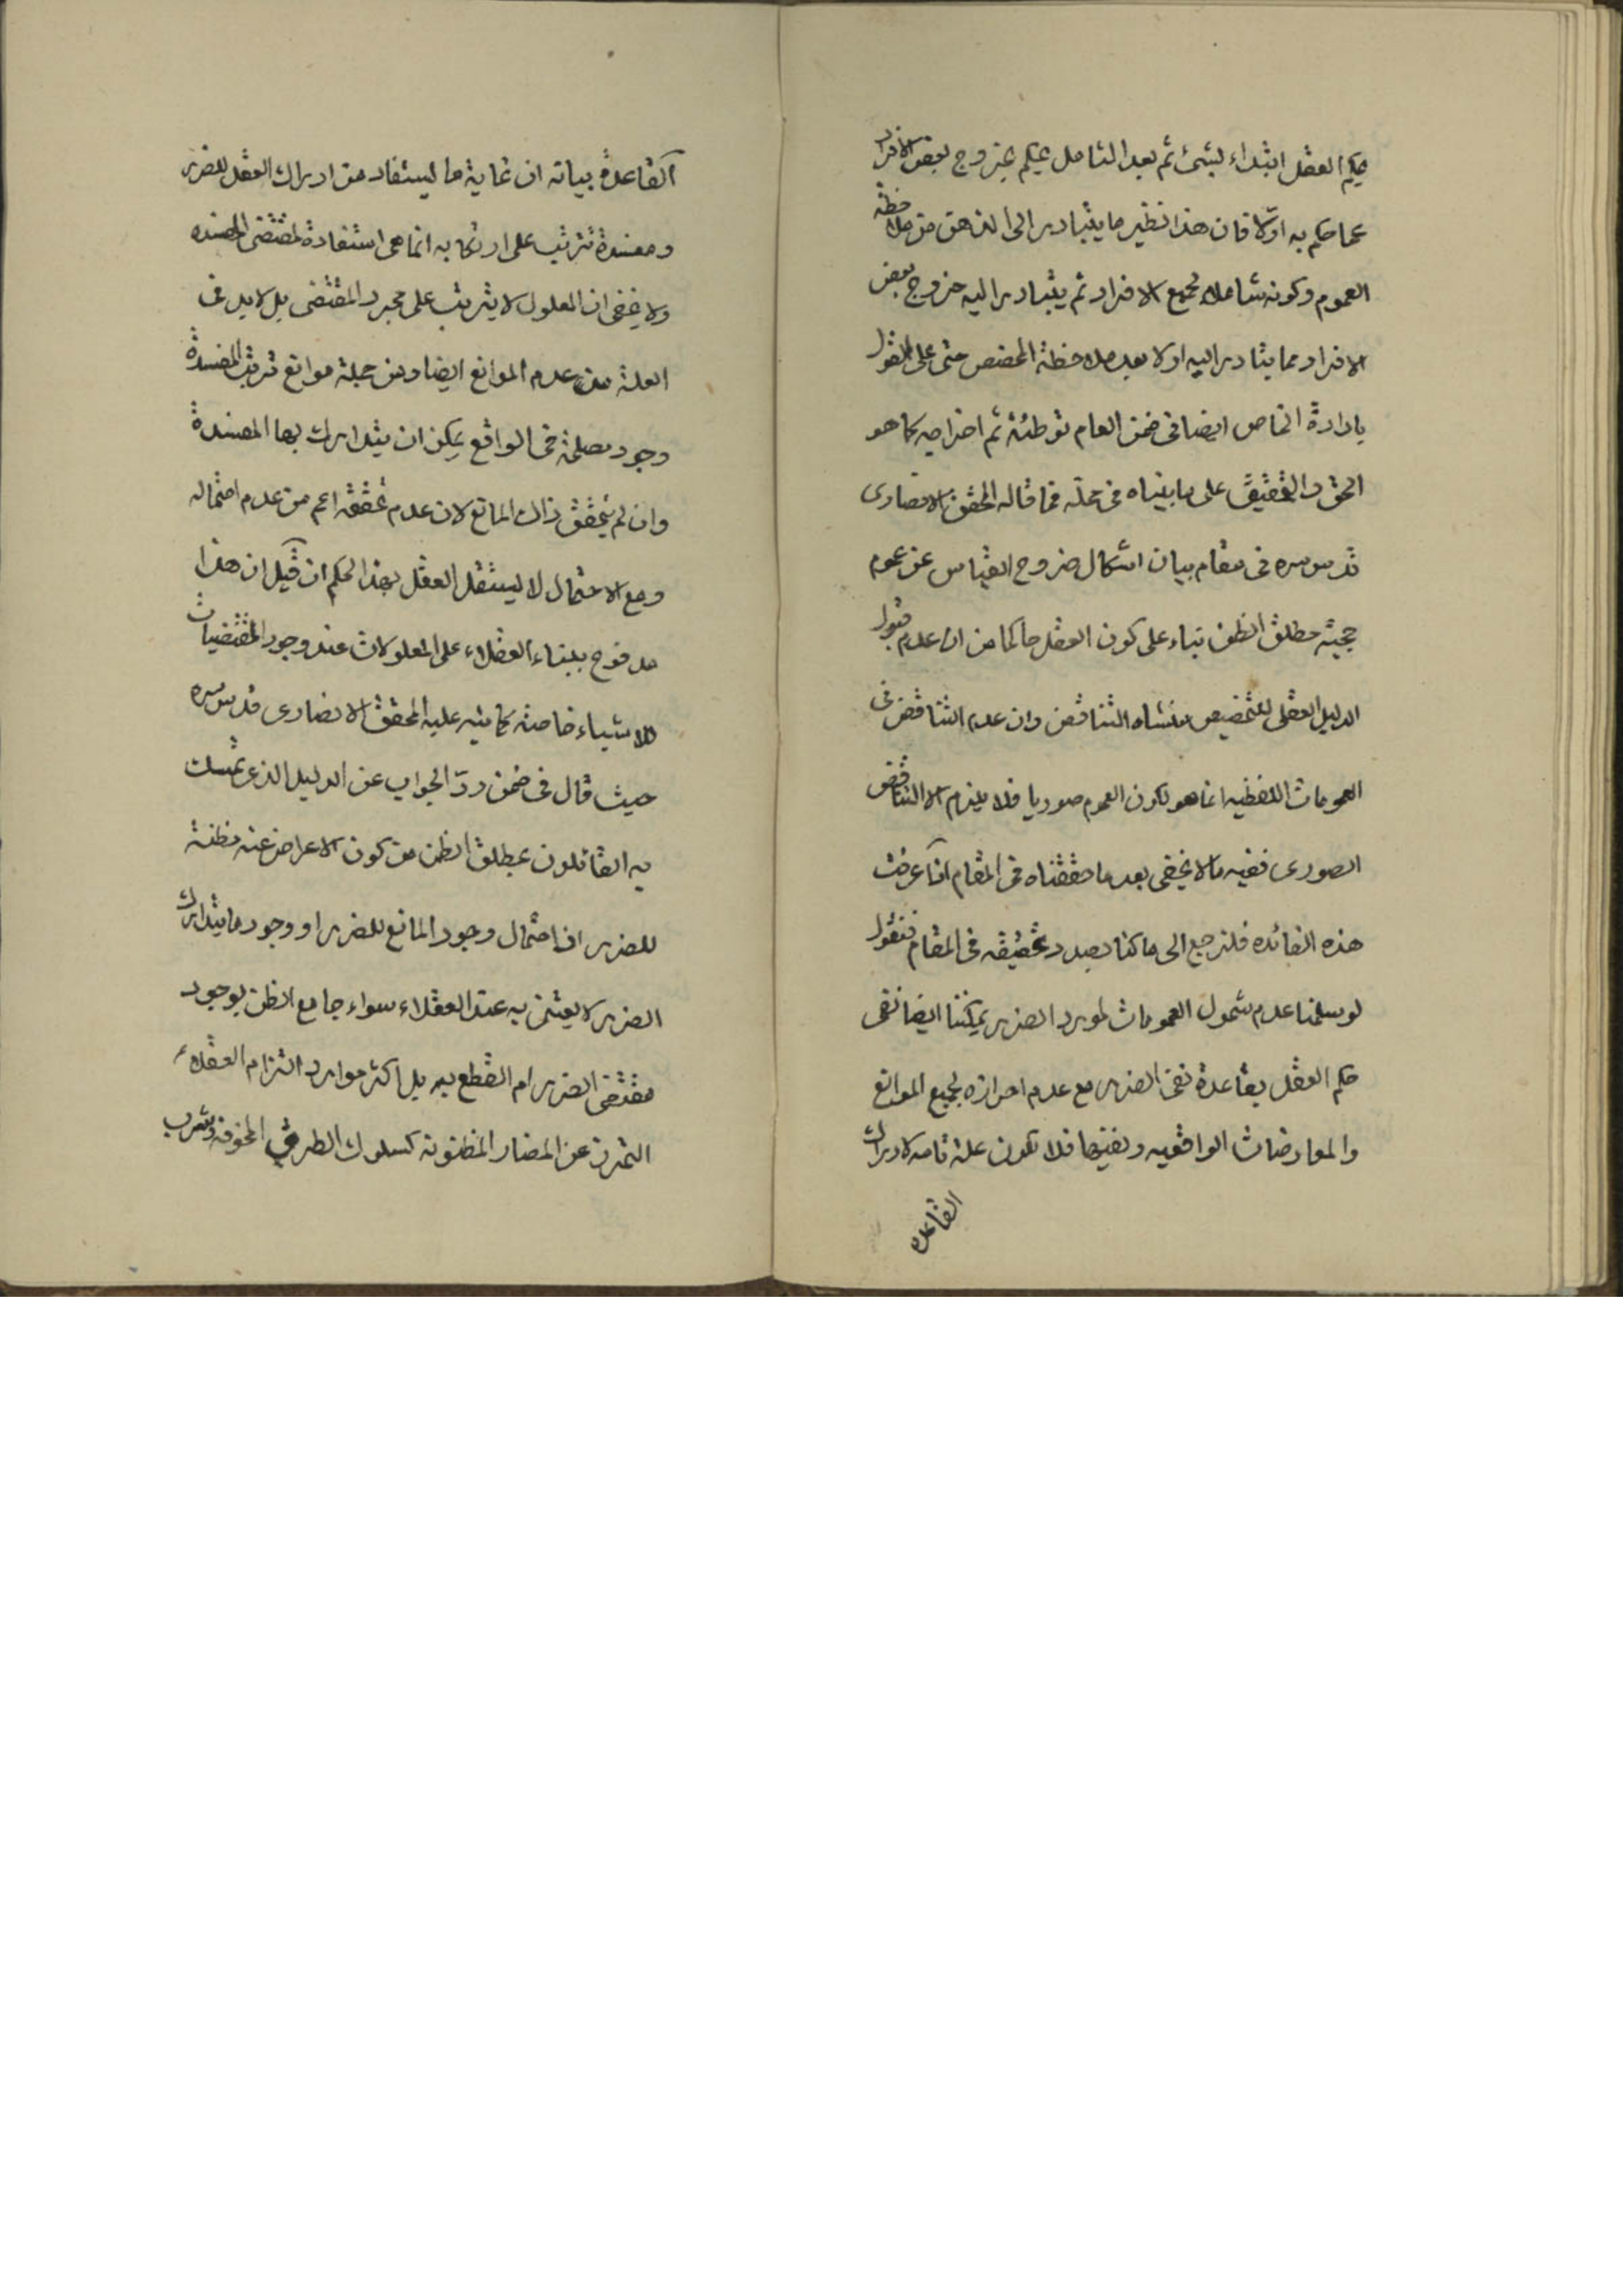 يحكم العقل ابتداء بشئ ثم بعد التامل يحكم بخروج بعض الافراد
عما حكم به اوّلا فان هذا نظير ما يتبادر الى الذهن من ملاحظة
العموم وكونه شاملا لجميع الافراد ثم يتبادر اليه خروج بعض
الافراد مما يتبادر اليه اولا بعد ملاحظة المخصص حتى على القول
بارادة الخاص ايضا فى ضمن العام توطئة ثم اخراجه كما هو
الحق والتحقيق على ما بيناه فى محلّه فما قاله المحقق الانصارى
قدس سره فى مقام بيان اشكال خروج القياس عن عموم
حجية مطلق الظن بناء على كون العقل حاكما من ان عدم قبول
الدليل العقلى للتخصيص منشاه التناقض وان عدم التناقض فى
العمومات اللفظيه انما هو لكون العموم صوريا فلا يلزم الا التناقض
الصورى ففيه ما لا يخفى بعد ما حققناه فى المقام اذا عرفت
هذه الفائده فلنرجع الى ما كنا بصدد تحقيقه فى المقام فنقول
لو سلمنا عدم شمول العمومات لمورد الضرر يمكننا ايضا نفى
حكم العقل بقاعدة نفى الضرر مع عدم احرازه لجميع الموانع
والمعارضات الواقعيه ونفيها فلا تكون علة تامه لادراك
القاعده
القاعدة بيانه ان غاية ما يستفاد من ادراك العقل للضرر
ومفسدة تترتب على ارتكابه انما هى استفادة لمقتضى المفسده
ولا يخفى ان المعلول لا يترتب على مجرد المقتضى بل لا بد فى
العلة من عدم الموانع ايضا ومن جملة موانع ترتب المفسدة
وجود مصلحة فى الواقع يمكن ان يتدارك بها المفسدة
وان لم يتحقق ذاك المانع لان عدم تحققه اعم من عدم احتماله
ومع الاحتمال لا يستقل العقل بهذا الحكم ان قيل ان هذا
مدفوع ببناء العقلاء على المعلولات عند وجود المقتضيات
للاشياء خاصة كما نبه عليه المحقق الانصارى قدس سره
حيث قال فى ضمن ردّ الجواب عن الدليل الذى تمسك
به القائلون بمطلق الظن من كون الاعراض عنه مظنة
للضرر ان احتمال وجود المانع للضرر او وجود ما يتدارك
الضرر لا يعتنى به عند العقلاء سواء جامع الظن بوجود
مقتضى الضرر ام القطع به بل اكثر موارد التزام العقلاء
التحرز عن المضار المظنونة كسلوك الطرق المخوفة وشرب